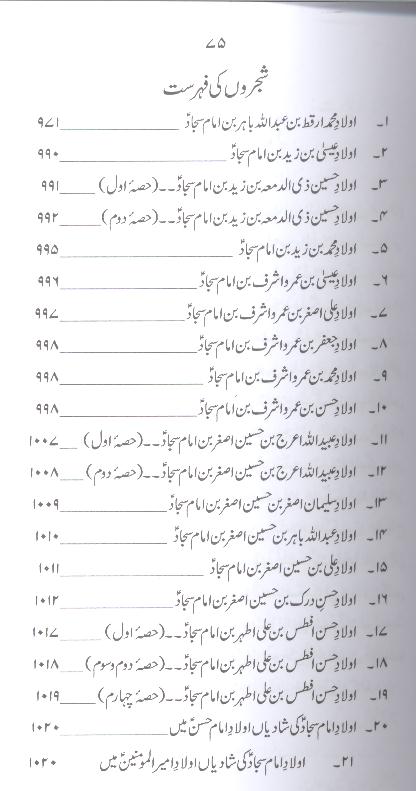 ۷۵
شجروں کی فہرست
۱۔ اولادِ محمد ارقط بن عبداللہ باہر بن امام سجادؑ ____ ۹۷۱
۲۔ اولادِ عیسیٰ بن زید بن امام سجادؑ ____ ۹۹۰
۳۔ اولادِ حسین ذی الدمعہ بن زید بن امام سجادؑ۔۔(حصۂ اول) ____ ۹۹۱
۴۔ اولادِ حسین ذی الدمعہ بن زید بن امام سجادؑ۔۔(حصۂ دوم) ____ ۹۹۲
۵۔ اولادِ محمد بن زید بن امام سجادؑ ____ ۹۹۵
۶۔ اولادِ عیسیٰ بن عمرو اشرف بن امام سجادؑ ____ ۹۹۶
۷۔ اولادِ علی اصغر بن عمرو اشرف بن امام سجادؑ ____ ۹۹۷
۸۔ اولادِ جعفر بن عمرو اشرف بن امام سجادؑ ____ ۹۹۸
۹۔ اولادِ محمد بن عمرو اشرف بن امام سجادؑ ____ ۹۹۸
۱۰۔ اولادِ حسن بن عمرو اشرف بن امام سجادؑ ____ ۹۹۸
۱۱۔ اولادِ عبید اللہ اعرج بن حسین اصغر بن امام سجادؑ۔۔(حصۂ اول) __ ۱۰۰۷
۱۲۔ اولادِ عبید اللہ اعرج بن حسین اصغر بن امام سجادؑ۔۔(حصۂ دوم) __ ۱۰۰۸
۱۳۔ اولادِ سلیمان اصغر بن حسین اصغر بن امام سجادؑ ____ ۱۰۰۹
۱۴۔ اولادِ عبداللہ باہر بن حسین اصغر بن امام سجادؑ ____ ۱۰۱۰
۱۵۔ اولادِ علی بن حسین اصغر بن امام سجادؑ ____ ۱۰۱۱
۱۶۔ اولادِ حسن درک بن حسین اصغر بن امام سجادؑ ____ ۱۰۱۲
۱۷۔ اولادِ حسن افطس بن علی اطہر بن امام سجادؑ۔۔(حصۂ اول) ____ ۱۰۱۷
۱۸۔ اولادِ حسن افطس بن علی اطہر بن امام سجادؑ۔۔(حصۂ دوم وسوم) __ ۱۰۱۸
۱۹۔ اولادِ حسن افطس بن علی اطہر بن امام سجادؑ۔۔(حصۂ چہارم) ____ ۱۰۱۹
۲۰۔ اولادِ امام سجادؑ کی شادیاں اولادِ امام حسنؑ میں ____ ۱۰۲۰
۲۱۔ اولادِ امام سجادؑ کی شادیاں اولادِ امیر المومنینؑ میں ۱۰۲۰